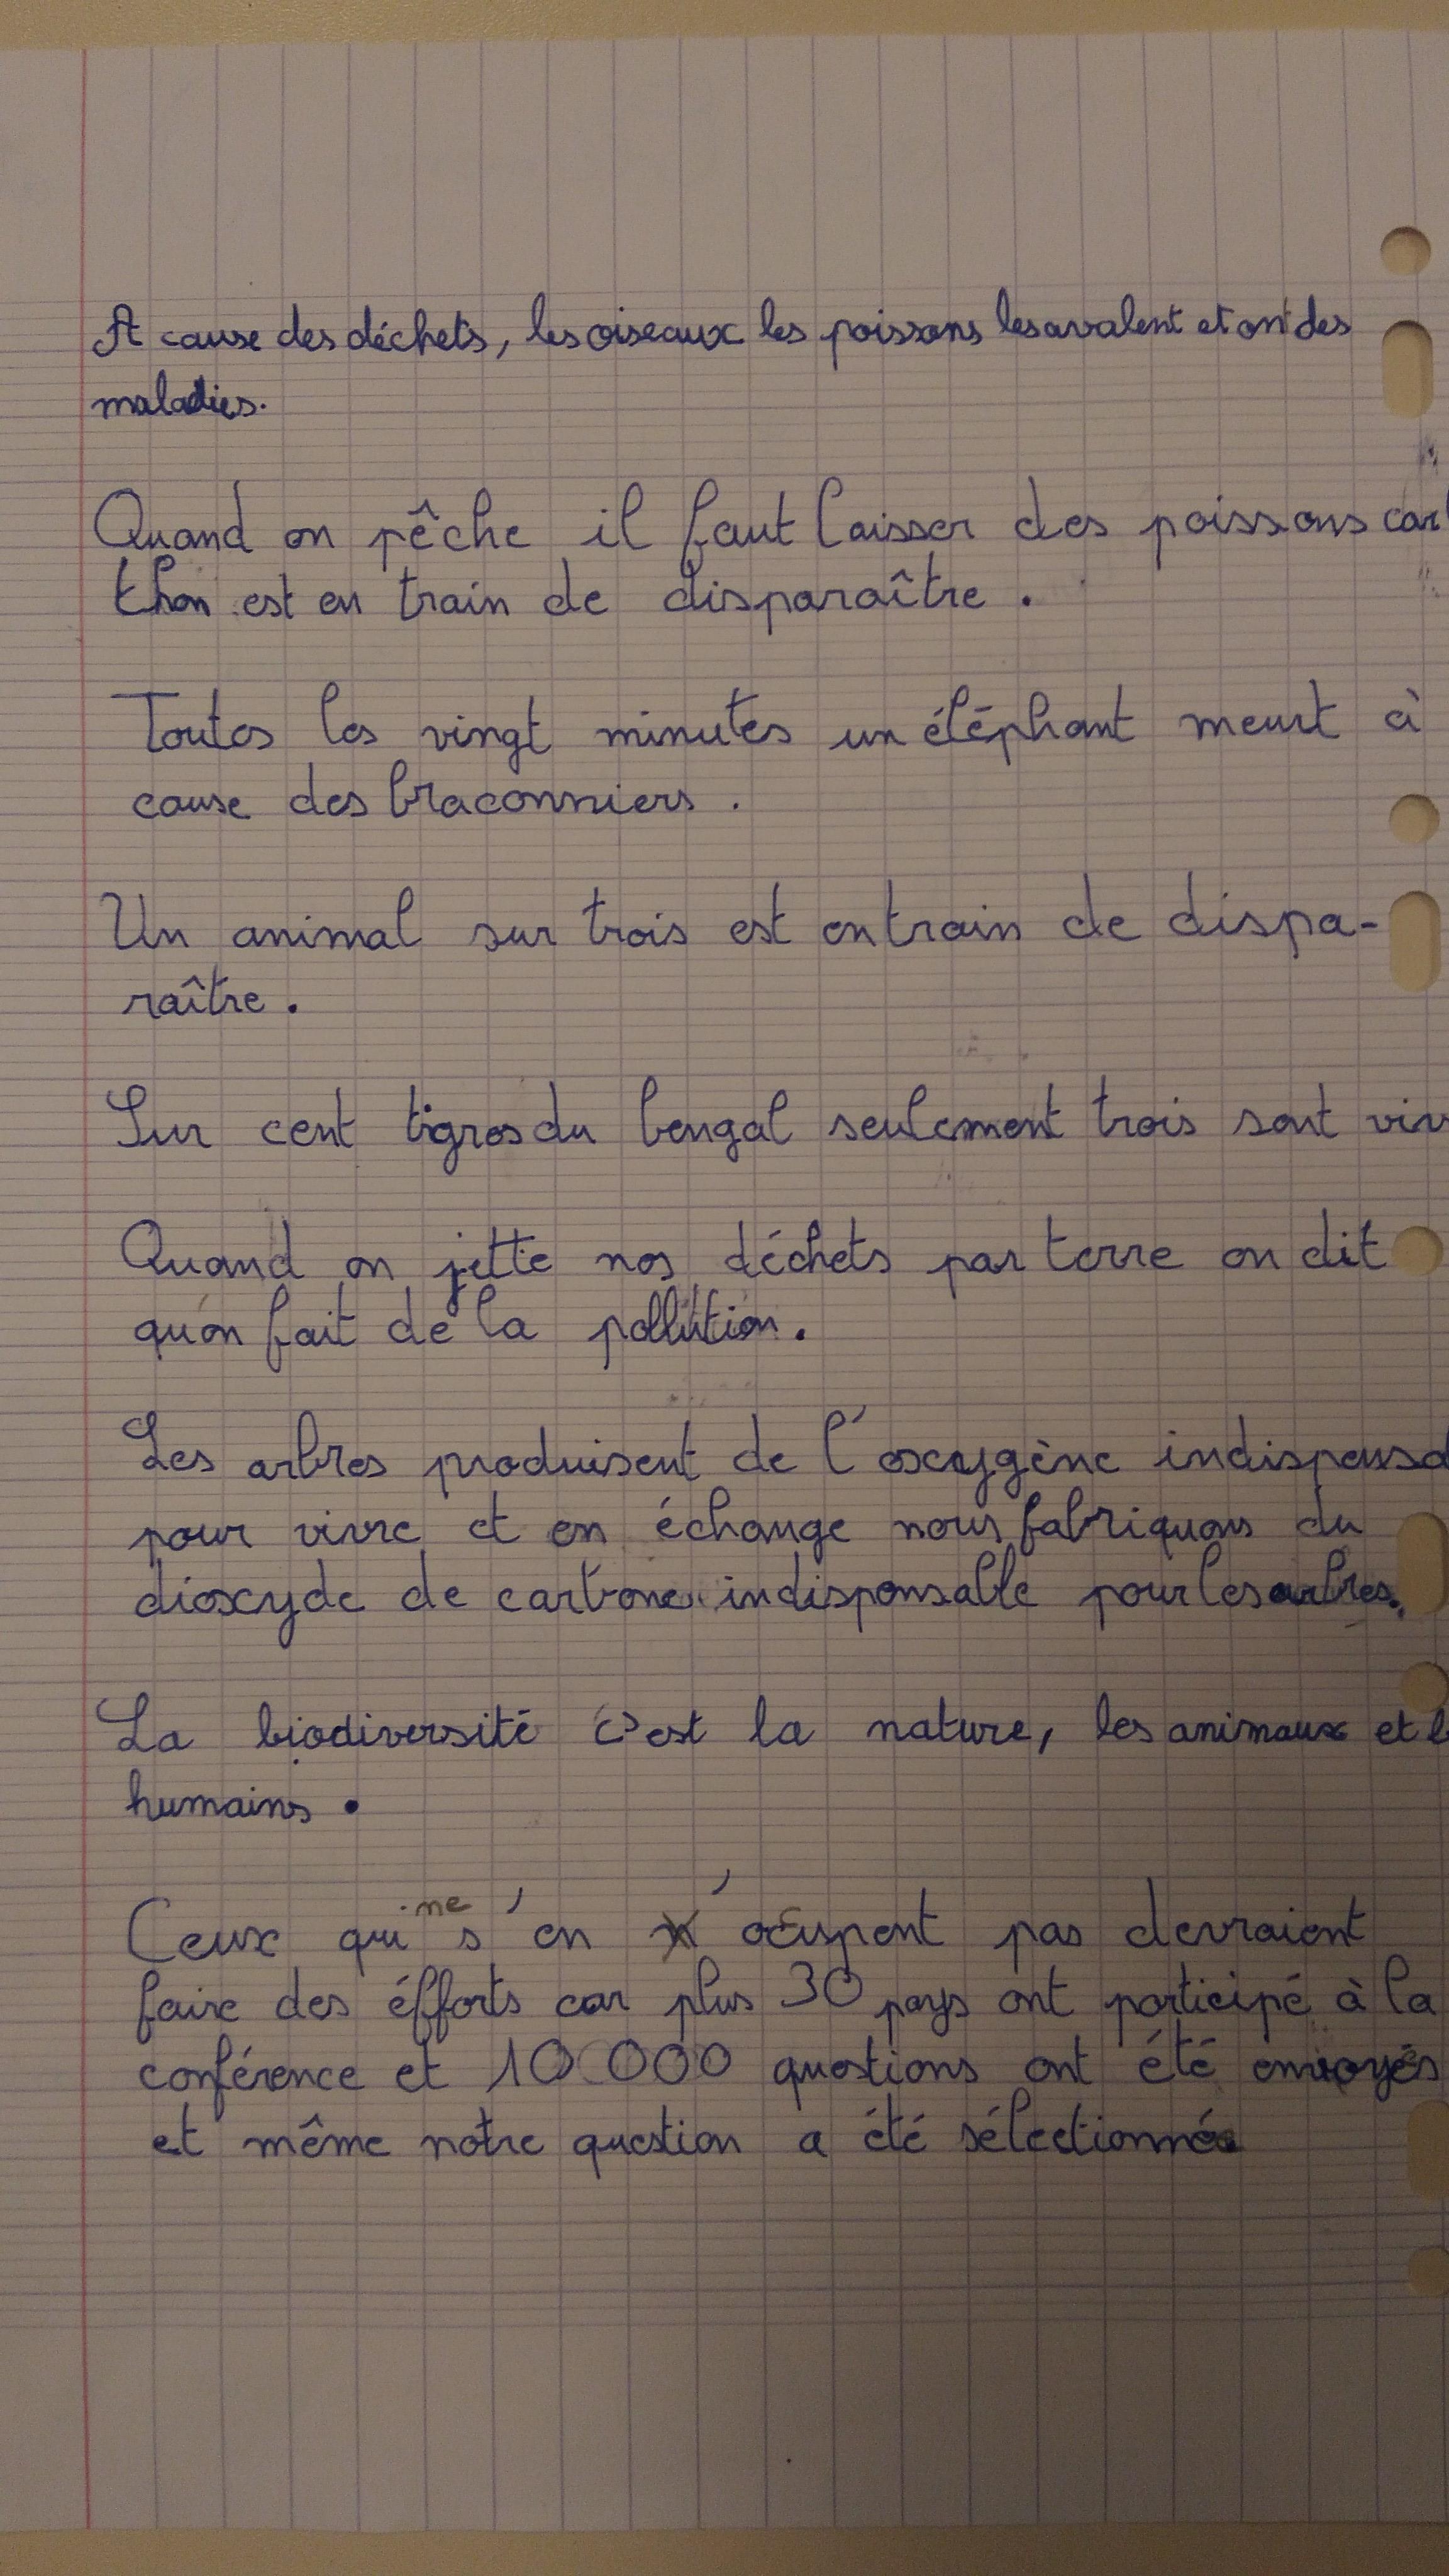 A cause des déchets, les oiseaux les poissons les avalent et ont des
maladies.
Quand on pêche il faut laisser des poissons car
thon est en train de disparaître.
Toutes les vingt minutes un éléphant meurt à
cause des braconniers.
Un animal sur trois est en train de dispa-
raître.
Sur cent tigres du bengal seulement trois sont
Quand on jette nos déchets par terre on dit
qu'on fait de la pollution.
Les arbres produisent de l'oxygène
pour vivre et en échange nous fabriquons du
dioxyde de carbone indisponsable pour les arbres.
La biodiversité c'est la nature, les animaux et
humains.
Ceux qui ne s'en occupent pas devraient
faire des éfforts car plus 30 pays ont participé à la
conférence et 10 000 questions ont été envoyés
et même notre question a été sélectionnée